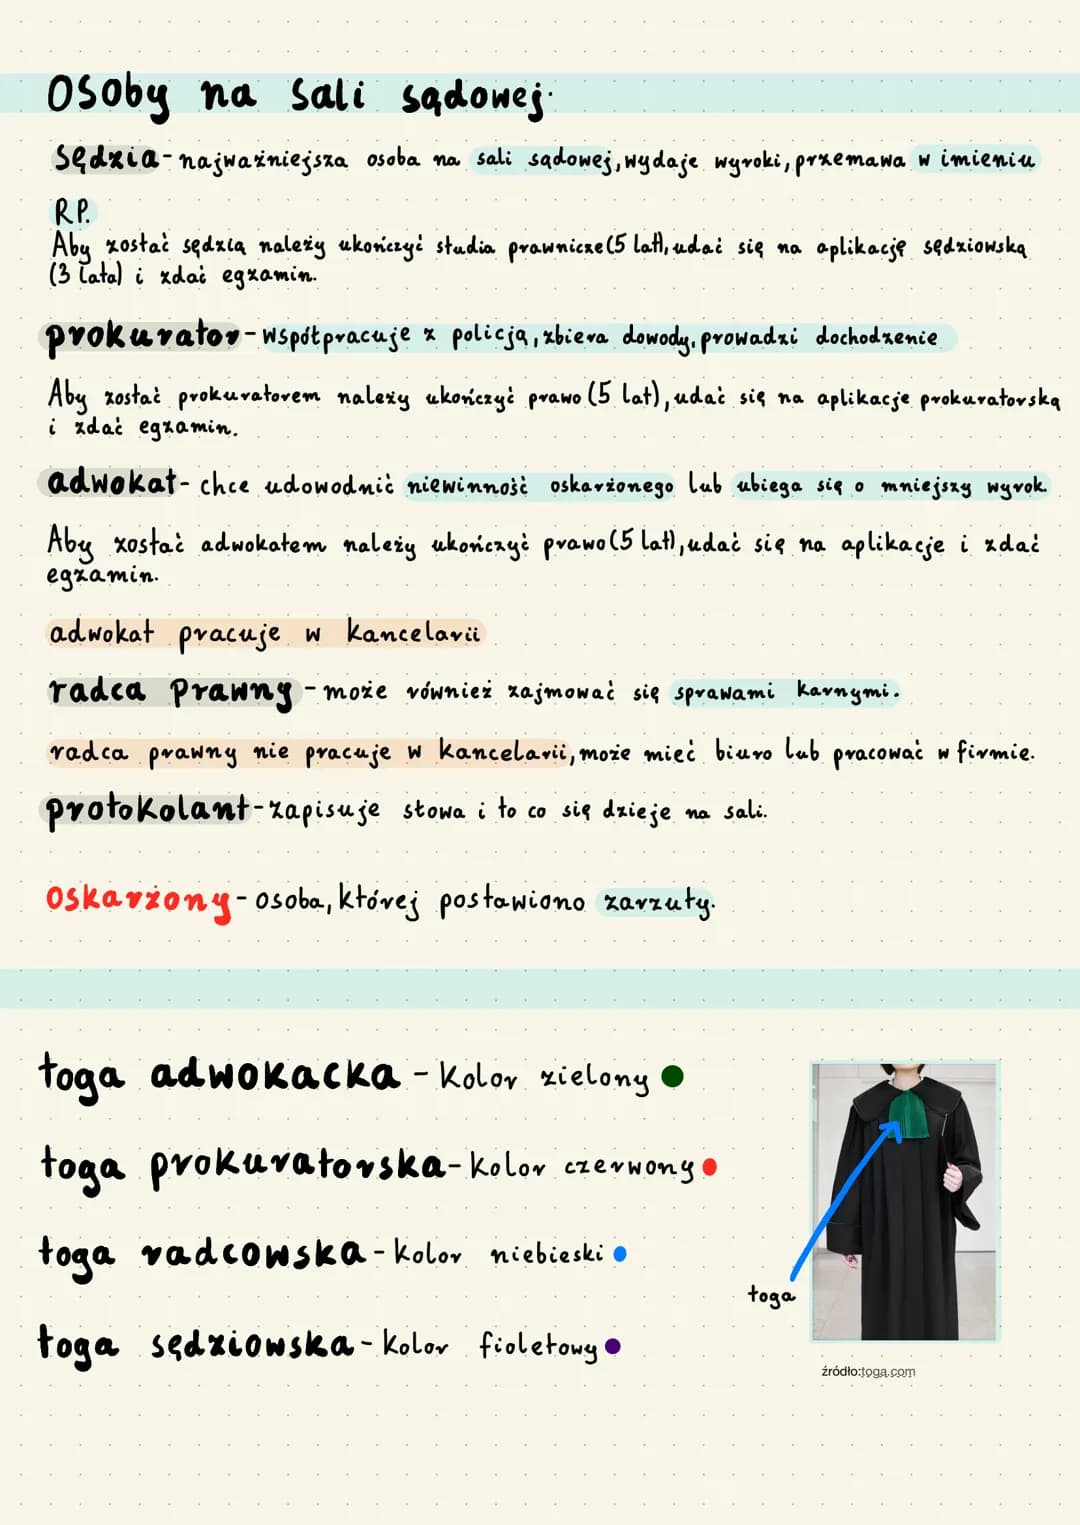 Osoby na sali sądowej.
sędzia - najważniejsza osoba na sali sądowej, wydaje wyroki, przemawa w imieniu
RP.
Aby zostać sędzią należy ukończyć studia prawnicze (5 lat), udać się na aplikację sędziowską
(3 lata) i zdać egzamin.
prokurator - współpracuje z policją, zbiera dowody, prowadzi dochodzenie
Aby zostać prokuratorem należy ukończyć prawo (5 lat), udać się na aplikacje prokuratorską
i zdać egzamin.
adwokat - chce udowodnić niewinność oskarżonego lub ubiega się o mniejszy wyrok.
Aby zostać adwokatem należy ukończyć prawo (5 lat), udać się na aplikacje i zdać
egzamin.
adwokat pracuje w kancelarii
radca prawny - może również zajmować się sprawami karnymi.
radca prawny nie pracuje w kancelarii, może mieć biuro lub pracować w firmie.
protokolant - zapisuje słowa i to co się dzieje na sali.
oskarżony - osoba, której postawiono zarzuty.
toga adwokacka - kolor zielony
toga prokuratorska - kolor czerwony
toga radcowska - kolor niebieski
toga
toga sędziowska - kolor fioletowy
źródło:toga.com